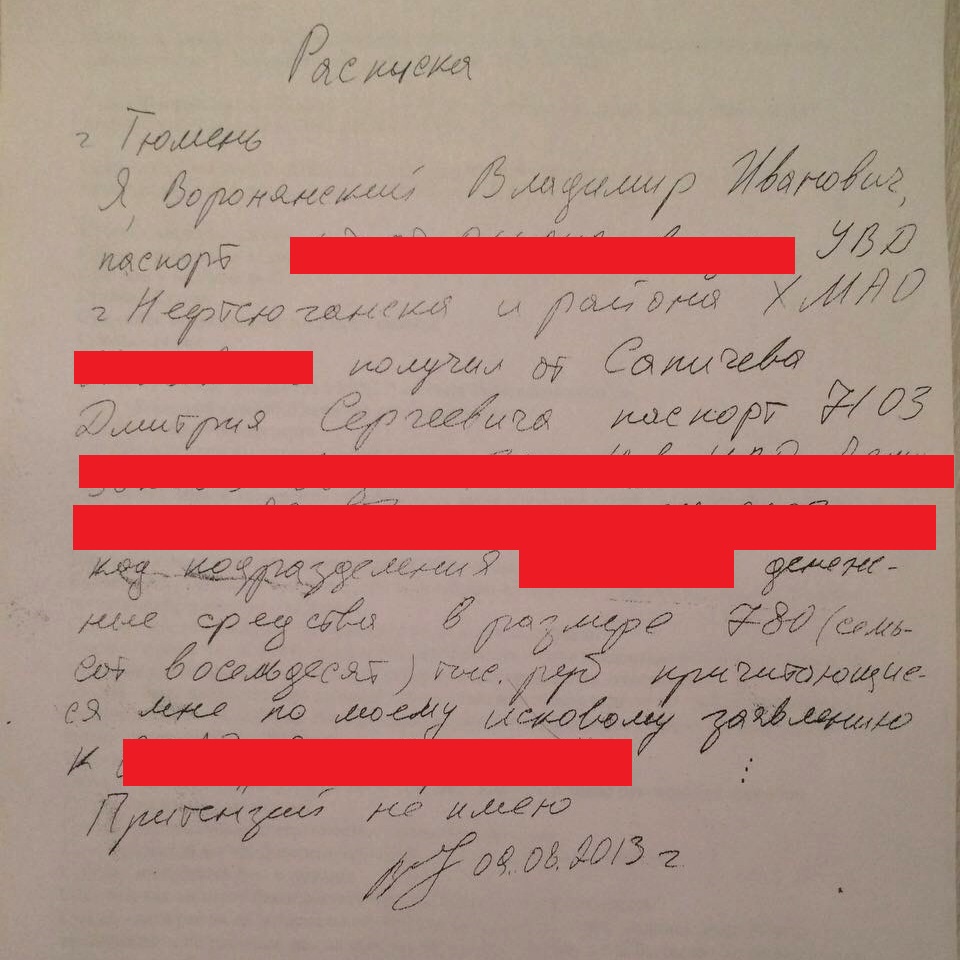 Расписка
г Тюмень
Я, Воронянский Владимир Иванович,
паспорт УВД
г Нефтеюганска и района ХМАО
получил от Сапичева
Дмитрия Сергеевича паспорт 7103
код подразделения денеж-
ные средства в размере 780 (семь-
сот восемьдесят) тыс. руб причитающие-
ся мне по моему исковому заявлению
к
Притензий не имею
09.08.2013 г